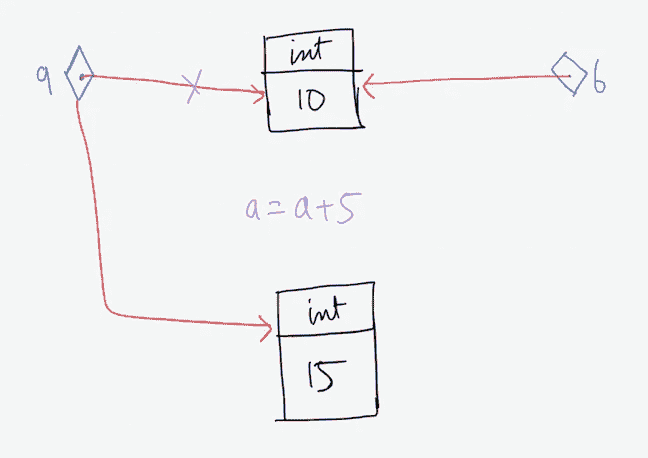 a
int
10
b
a=a+5
int
15